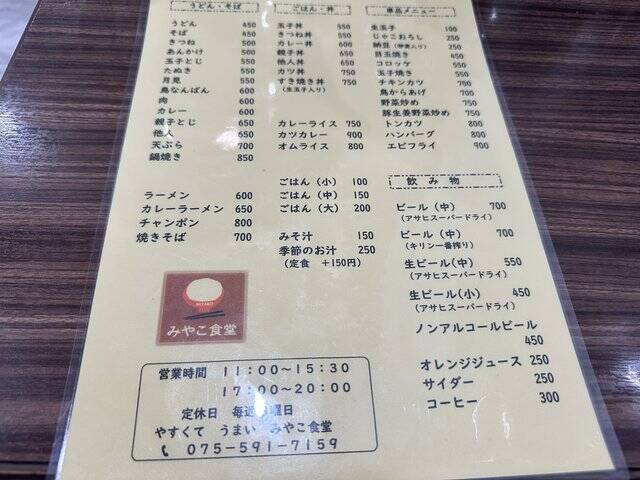 うどん・そば
うどん 450
そば 450
きつね 500
あんかけ 500
玉子とじ 550
たぬき 550
月見 550
鳥なんばん 600
肉 600
カレー 600
親子とじ 650
他人 650
天ぷら 700
鍋焼き 850
ラーメン 600
カレーラーメン 650
チャンポン 800
焼きそば 700
ごはん・丼
玉子丼 550
きつね丼 550
カレー丼 600
親子丼 650
他人丼 650
カツ丼 750
すき焼き丼 750
(生玉子入り)
カレーライス 750
カツカレー 900
オムライス 800
ごはん(小) 100
ごはん(中) 150
ごはん(大) 200
みそ汁 150
季節のお汁 250
(定食 +150円)
単品メニュー
生玉子 100
じゃこおろし 250
納豆 250
目玉焼き 350
コロッケ 550
玉子焼き 550
チキンカツ 700
鳥からあげ 700
野菜炒め 700
豚生姜野菜炒め 750
トンカツ 800
ハンバーグ 800
エビフライ 900
飲み物
ビール(中) 700
(アサヒスーパードライ)
ビール(中) 700
(キリン一番搾り)
生ビール(中) 550
(アサヒスーパードライ)
生ビール(小) 450
(アサヒスーパードライ)
ノンアルコールビール
450
オレンジジュース 250
サイダー 250
コーヒー 300
MIYAKO
みやこ食堂
営業時間 11:00〜15:30
17:00〜20:00
定休日 毎週 曜日
やすくて うまい みやこ食堂
075-591-7159